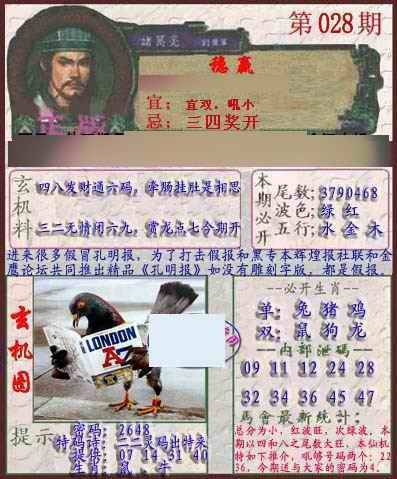 第028期
諸葛亮
稳赢
宜：宜双，吼小
忌：三四奖开
正版
玄机料
四八发财通六码，牵肠挂肚是相思
二二无情闭六九，赏龙点七今期开
本期必开
尾数：3790468
波色：绿 红
五行：水 金 木
进来很多假冒孔明报，为了打击假报和黑专本辉煌报社联和金
鹰论坛共同推出精品《孔明报》如没有雕刻字版，都是假报。
玄机图
LONDON
A
--必开生肖--
单：兔 猪 鸡
双：鼠 狗 龙
--内部泄码--
09 11 12 24 28
32 34 36 45 47
馬會最新统计：
总分为小，红波旺，次绿波，本
期以四和八之尾数大旺，本仙机
特如下推介，吼够号码两个：22
36，今期送与大家的密码为4。
提示
密码：2648
特码诗：二二灵码出特来
提供：07 14 31 40
生肖：鼠、